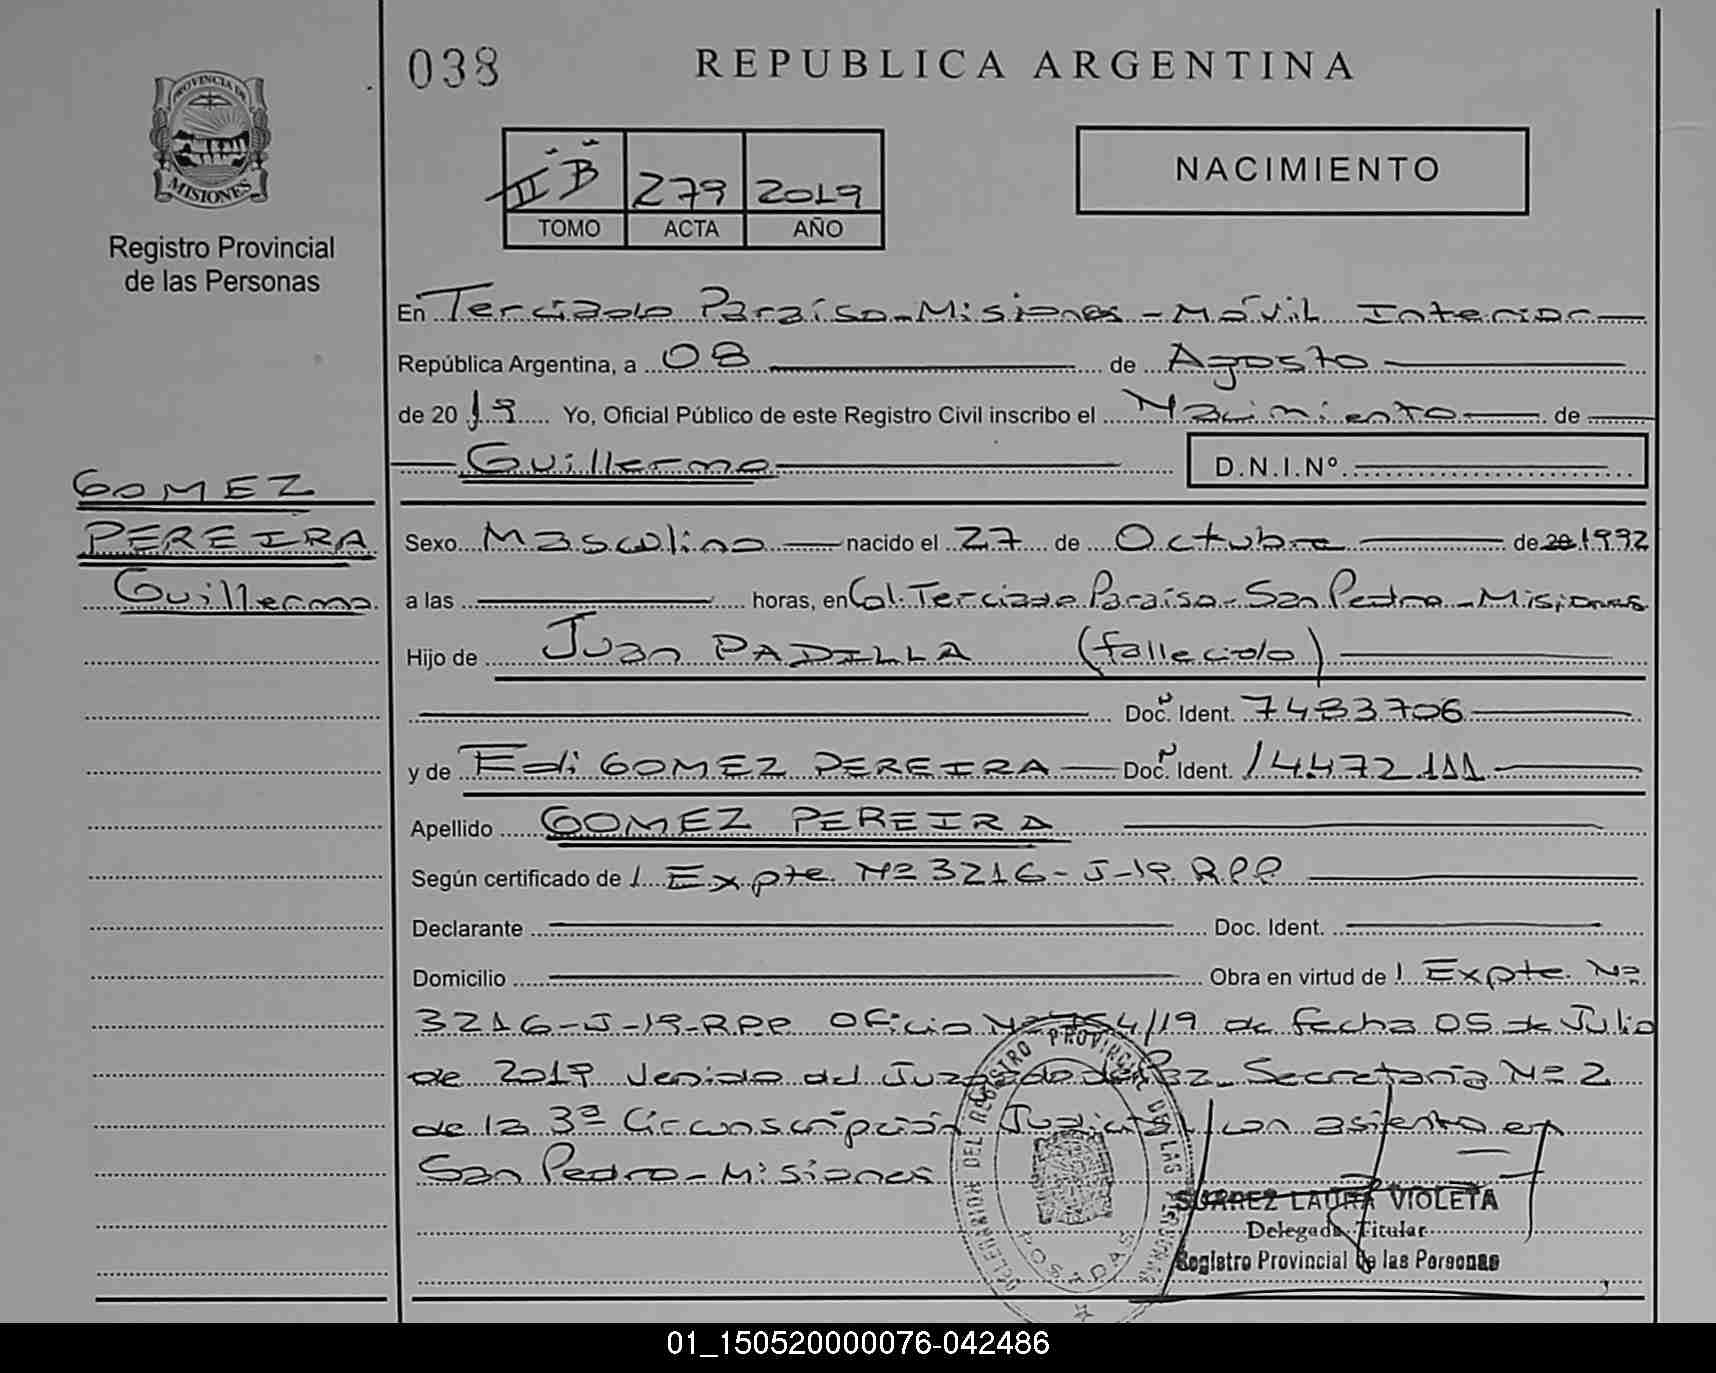 038
REPUBLICA ARGENTINA
PROVINCIA DE
MISIONES
Registro Provincial
de las Personas
II B 279 2019
TOMO ACTA AÑO
NACIMIENTO
En Terciado Paraíso - Misiones - Móvil Interior
República Argentina, a 08 de Agosto
de 2019 Yo, Oficial Público de este Registro Civil inscribo el Nacimiento de
Guillermo
D.N.I.Nº
GOMEZ
PEREIRA
Guillermo
Sexo Masculino nacido el 27 de Octubre de 20 1992
a las horas, en Col. Terciado Paraíso - San Pedro - Misiones
Hijo de Juan PADILLA (fallecido)
Doc. Ident. 7483706
y de Edi GOMEZ PEREIRA Doc. Ident. 14.472.111
Apellido GOMEZ PEREIRA
Según certificado de / Expte Nº 3216-J-19 RPP
Declarante Doc. Ident.
Domicilio Obra en virtud de / Expte. Nº
3216-J-19-RPP Oficio Nº 754/19 de fecha 05 de Julio
de 2019 venido del Juzgado de Paz - Secretaría Nº 2
de la 3ª Circunscripción Judicial con asiento en
San Pedro - Misiones
DEL REGISTRO PROVINCIAL DE LAS
POSADAS
SUAREZ LAURA VIOLETA
Delegada Titular
Registro Provincial de las Personas
01_150520000076-042486